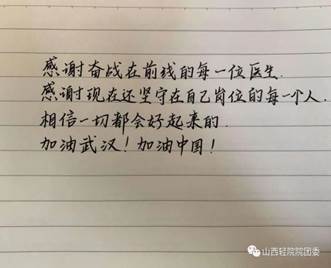 感谢奋战在前线的每一位医生.
感谢现在还坚守在自己岗位的每一个人.
相信一切都会好起来的.
加油武汉!加油中国!
山西轻院院团委